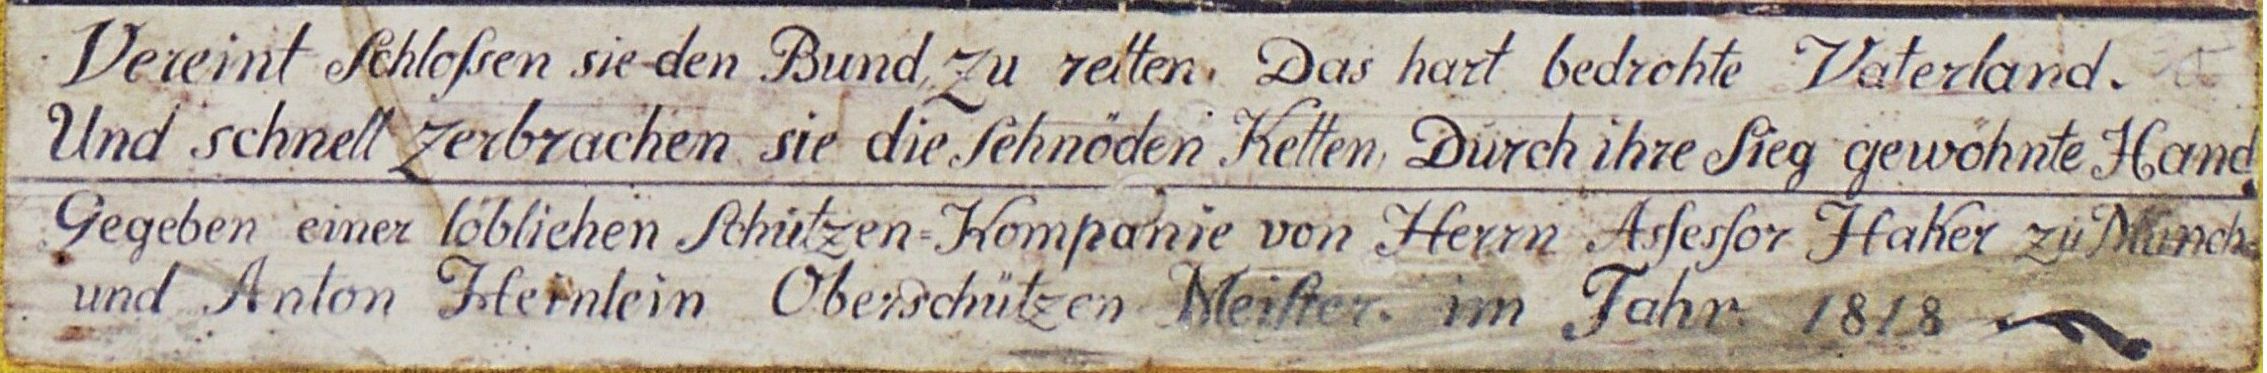 Vereint Schloſsen sie den Bund, zu retten. Das hart bedrohte Vaterland.
Und schnell zerbrachen sie die Schnöden Ketten, Durch ihre Sieg gewöhnte Hand
Gegeben einer löblichen Schützen=Kompanie von Herrn Aſseſsor Haker zu Münch
und Anton Hernlein Oberschützen Meiſter. im Jahr. 1818